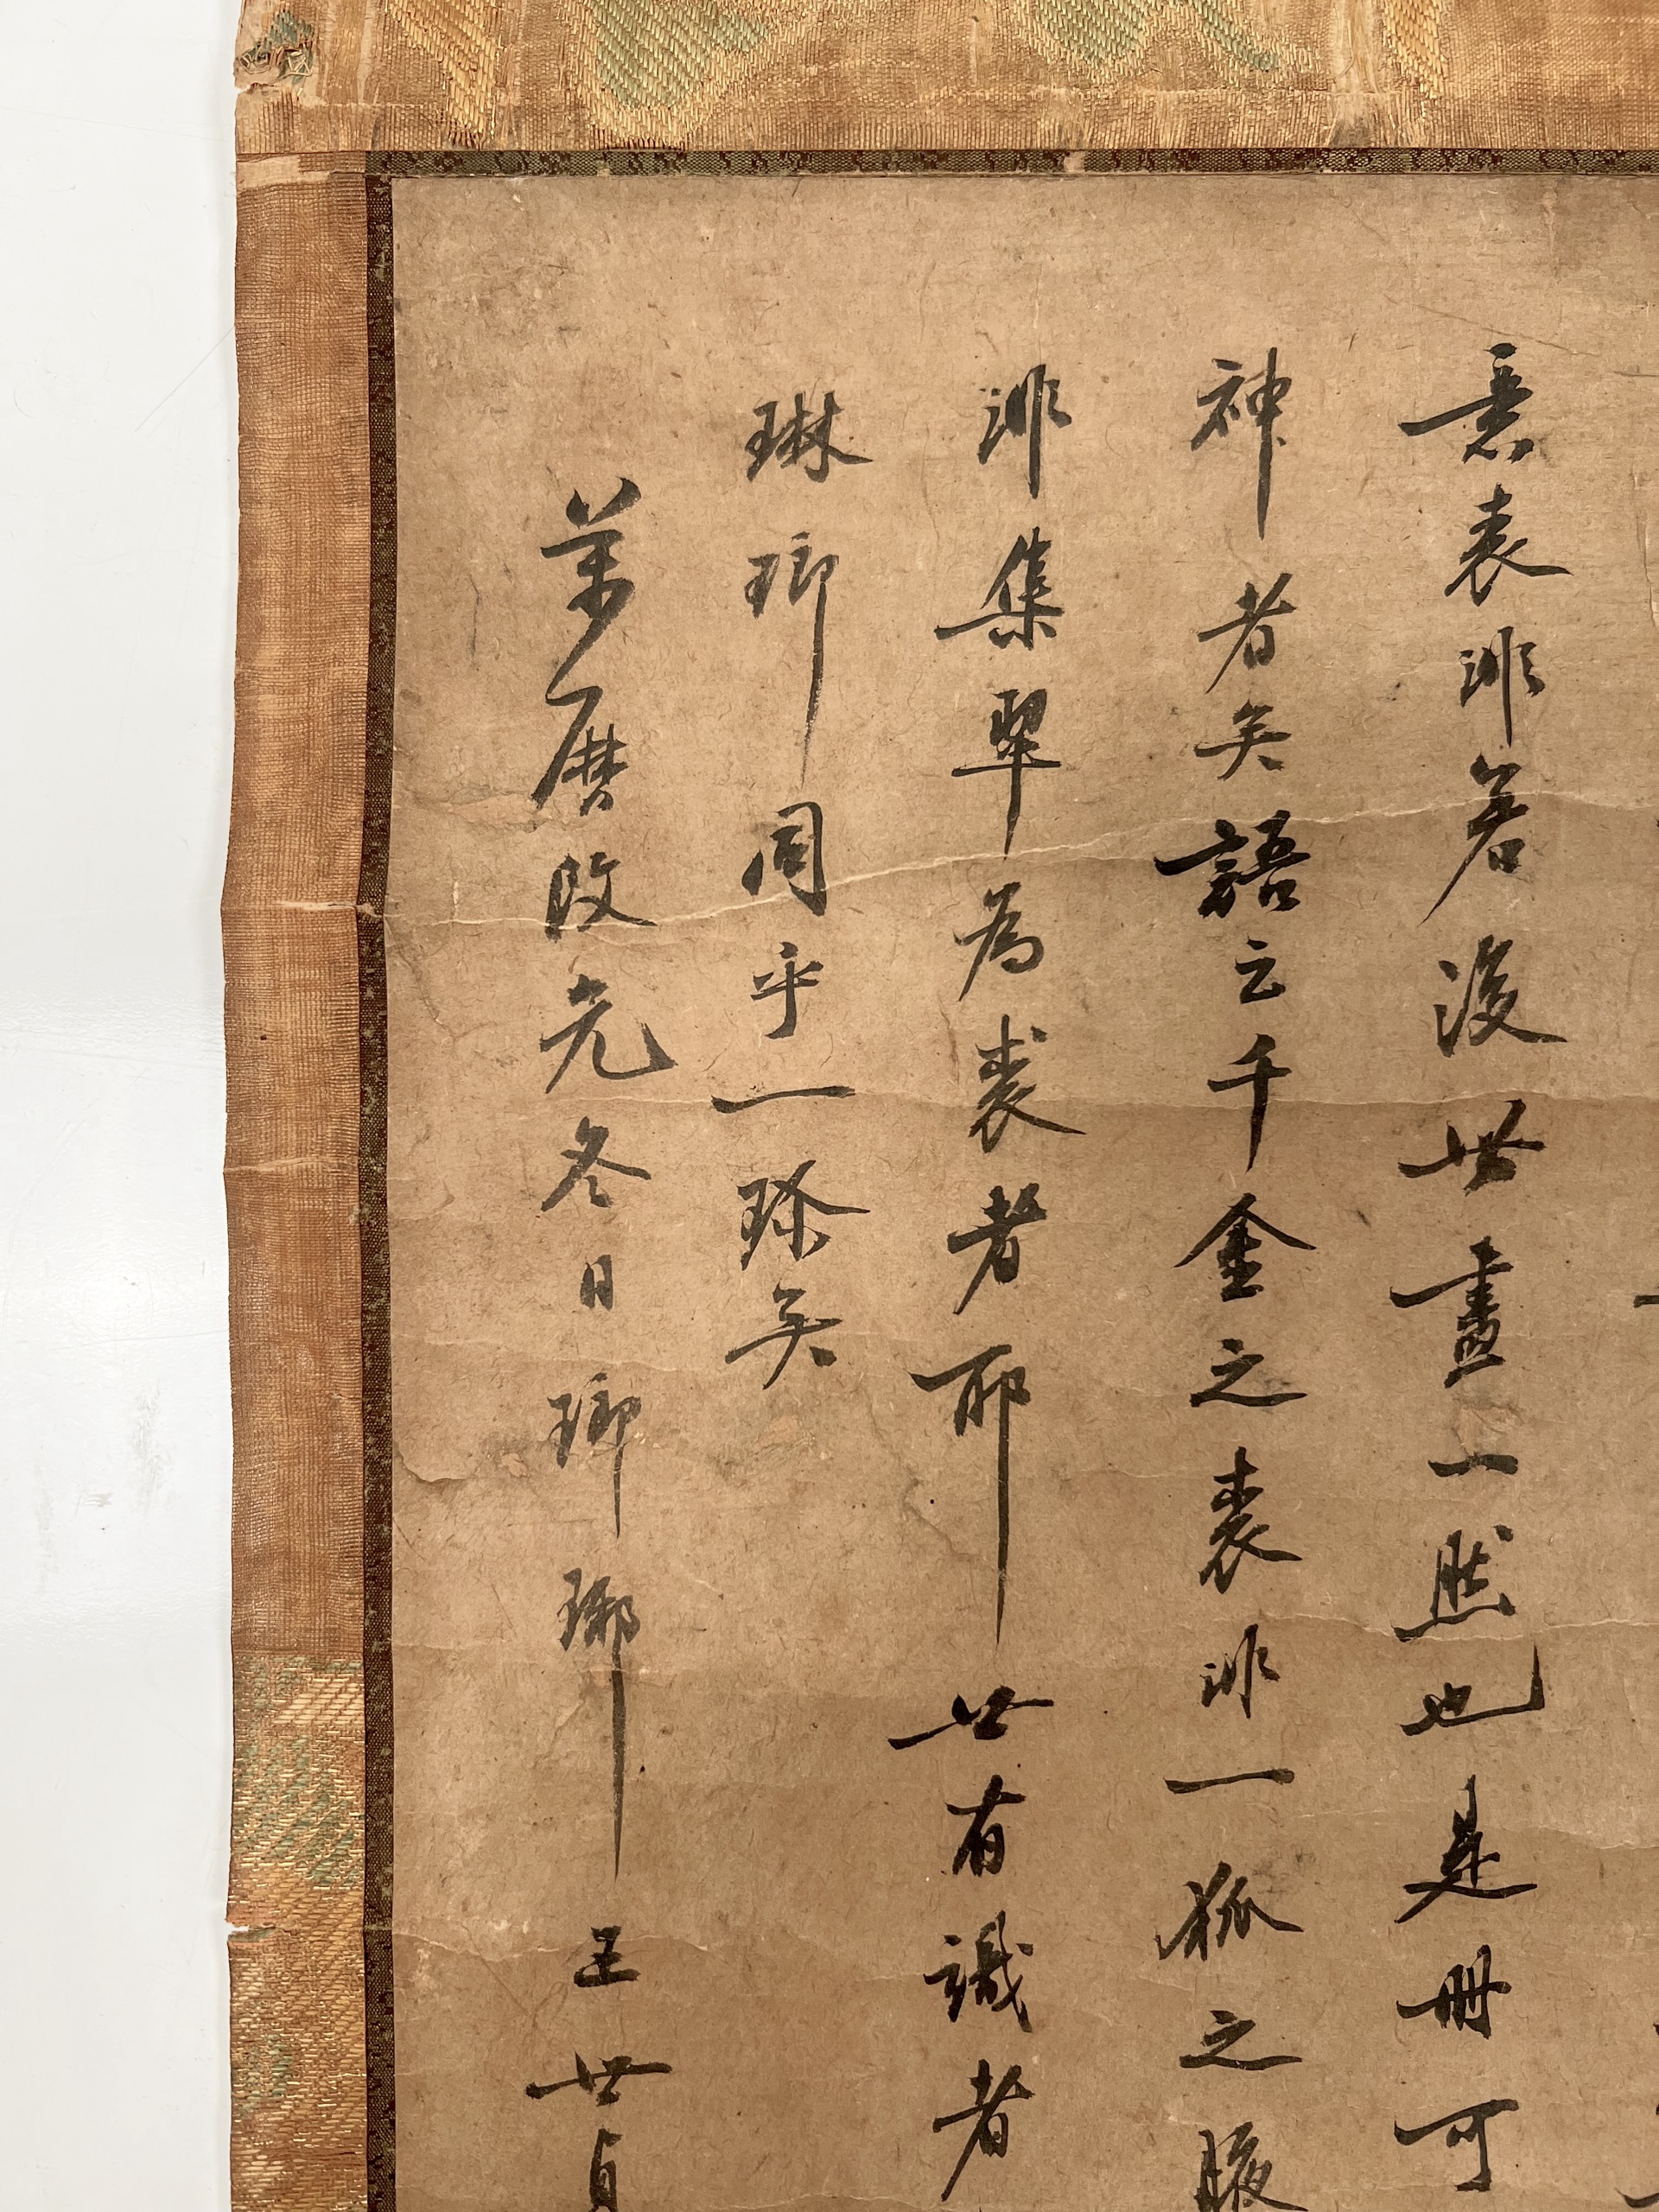 意表非若後世畫一然也是冊可
神者矣語云千金之裘非一狐之腋
非集翠為裘者耶世有識者
琳瑯同乎一珍矣
萬曆改元冬日瑯琊王世貞